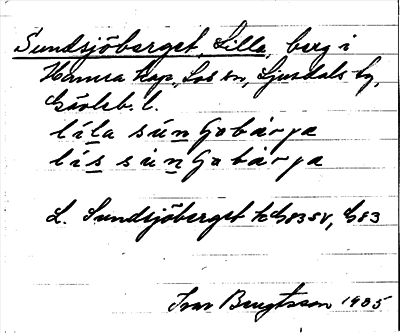 Sundsjöberget, Lilla, berg i
Hamra kap., Los sn, Ljusdals tg,
Gävleb. l.
lila sunsjobärja
lis sunsjobärja
L. Sundsjöberget SV,
Ivar Bengtsson 1935